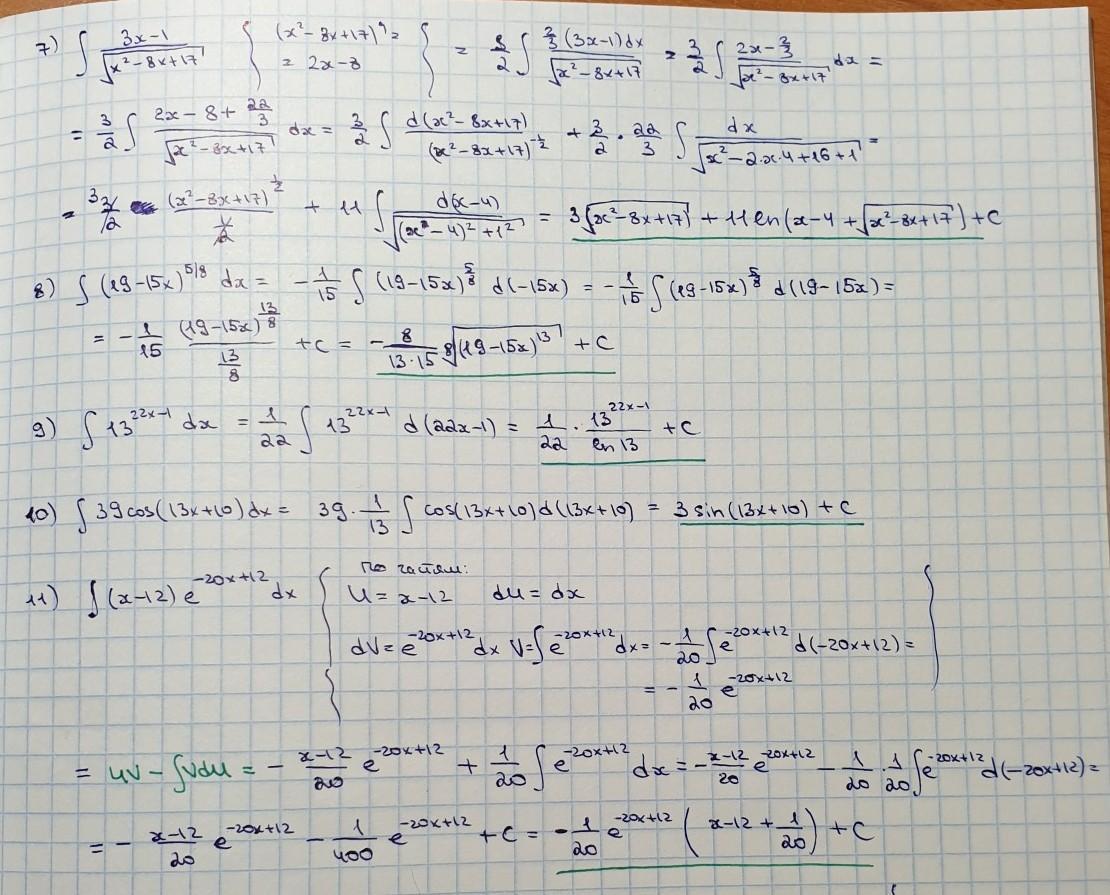 7) ∫ (3x-1)/√(x²-8x+17) { (x²-8x+17)' = = 2x-8 { = 3/2 ∫ (2/3 (3x-1)dx)/√(x²-8x+17) = 3/2 ∫ (2x-2/3)/√(x²-8x+17) dx =
= 3/2 ∫ (2x-8+22/3)/√(x²-8x+17) dx = 3/2 ∫ d(x²-8x+17)/(x²-8x+17)^(-1/2) + 3/2 · 22/3 ∫ dx/√(x²-2·x·4+16+1) =
= 3 3/2 (x²-8x+17)^(1/2)/(1/2) + 11 ∫ d(x-4)/√((x-4)²+1²) = 3√(x²-8x+17) + 11 ln(x-4+√(x²-8x+17)) + C
8) ∫ (19-15x)^(5/8) dx = -1/15 ∫ (19-15x)^(5/8) d(-15x) = -1/15 ∫ (19-15x)^(5/8) d(19-15x) =
= -1/15 (19-15x)^(13/8)/(13/8) + C = -8/(13·15) ⁸√((19-15x)^13) + C
9) ∫ 13^(22x-1) dx = 1/22 ∫ 13^(22x-1) d(22x-1) = 1/22 · 13^(22x-1)/ln 13 + C
10) ∫ 39cos(13x+10)dx = 39 · 1/13 ∫ cos(13x+10)d(13x+10) = 3 sin(13x+10) + C
11) ∫ (x-12) e^(-20x+12) dx { по частям:
U = x-12 dU = dx
dV = e^(-20x+12) dx V = ∫ e^(-20x+12) dx = -1/20 ∫ e^(-20x+12) d(-20x+12) =
= -1/20 e^(-20x+12)
= UV - ∫VdU = -(x-12)/20 e^(-20x+12) + 1/20 ∫ e^(-20x+12) dx = -(x-12)/20 e^(-20x+12) - 1/20 · 1/20 ∫ e^(-20x+12) d(-20x+12) =
= -(x-12)/20 e^(-20x+12) - 1/400 e^(-20x+12) + C = -1/20 e^(-20x+12) (x-12+1/20) + C